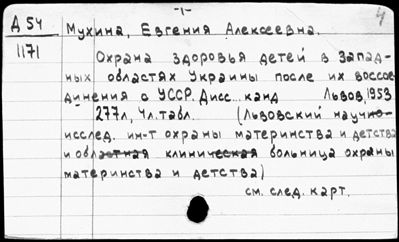 -1-
4
Д 54
1171
Мухина, Евгения Алексеевна.
Охрана здоровья детей в Запад-
ных областях Украины после их воссое-
динения с УССР. Дисс... канд Львов, 1953
277л, 4л.табл. (Львовский научно-
исслед. ин-т охраны материнства и детства
и областная клиническая больница охраны
материнства и детства)
см. след. карт.